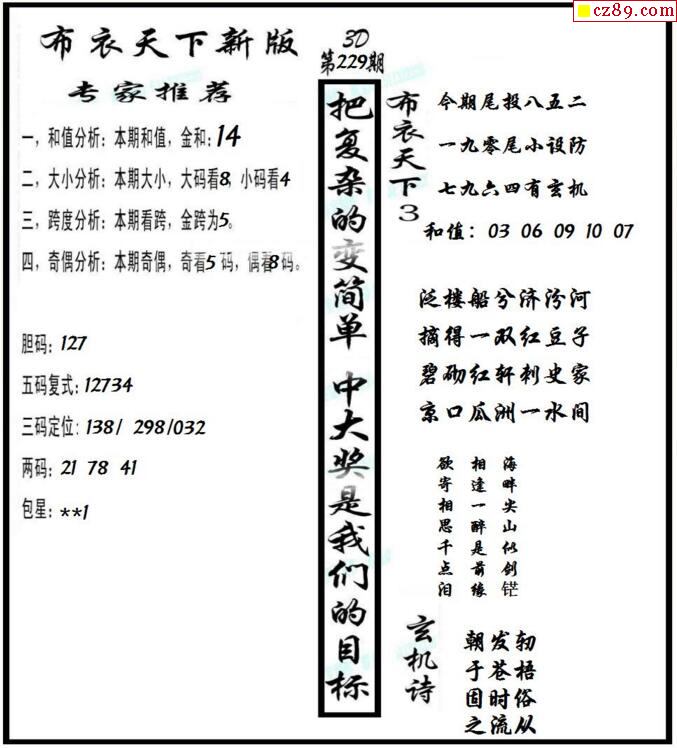 cz89.com
布衣天下新版
专家推荐
一，和值分析：本期和值，金和：14
二，大小分析：本期大小，大码看8，小码看4
三，跨度分析：本期看跨，金跨为5。
四，奇偶分析：本期奇偶，奇看5码，偶看8码。
胆码：127
五码复式：12734
三码定位：138/ 298/032
两码：21 78 41
包星：**1
3D
第229期
把复杂的变简单 中大奖是我们的目标
布衣天下3
今期尾投八五二
一九零尾小设防
七九六四有玄机
和值：03 06 09 10 07
泛楼船兮济汾河
摘得一双红豆子
碧砌红轩刺史家
京口瓜洲一水间
海畔尖山似剑铓
相逢一醉是前缘
欲寄相思千点泪
玄机诗
朝发轫
于苍梧
固时俗
之流从